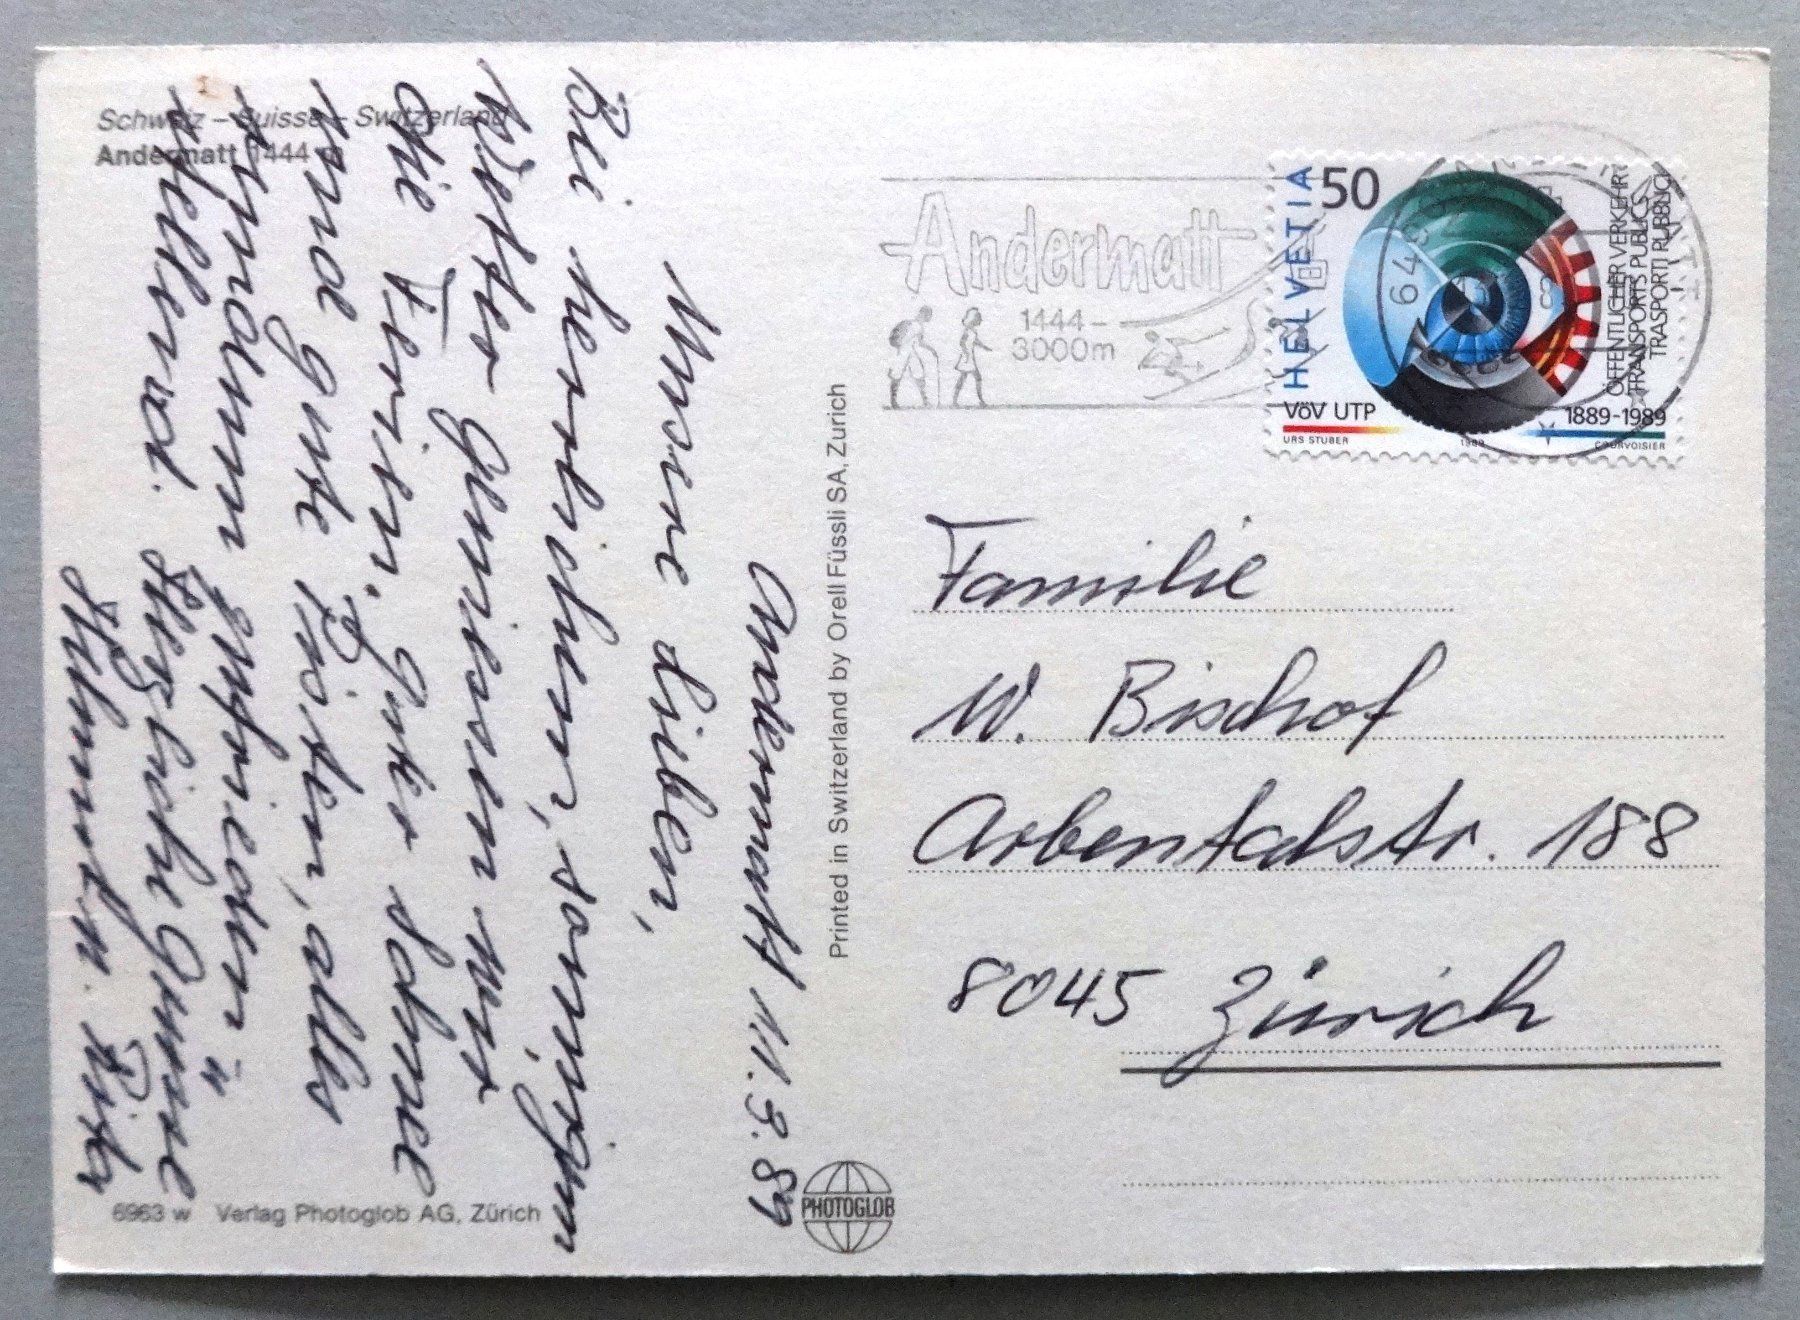 Schweiz – Suisse – Switzerland
Andermatt 1444 m
Andermatt 11.3.89
Unsere Lieben,
Bei herrlichem, sonnigem
Wetter geniessen wir
die Ferien. Guter Schnee
und gute Pisten, alles
stimmt zufrieden u
stellend. Herzliche Grüsse
Helmut u.
6963 w Verlag Photoglob AG, Zürich
Printed in Switzerland by Orell Füssli SA, Zürich
PHOTOGLOB
Andermatt
1444 –
3000m
HELVETIA
50
ÖFFENTLICHER VERKEHR
TRANSPORTS PUBLICS
TRASPORTI PUBBLICI
VöV UTP
1889-1989
URS STUBER
1989
COURVOISIER
Familie
W. Bischof
Arbentalstr. 188
8045 Zürich